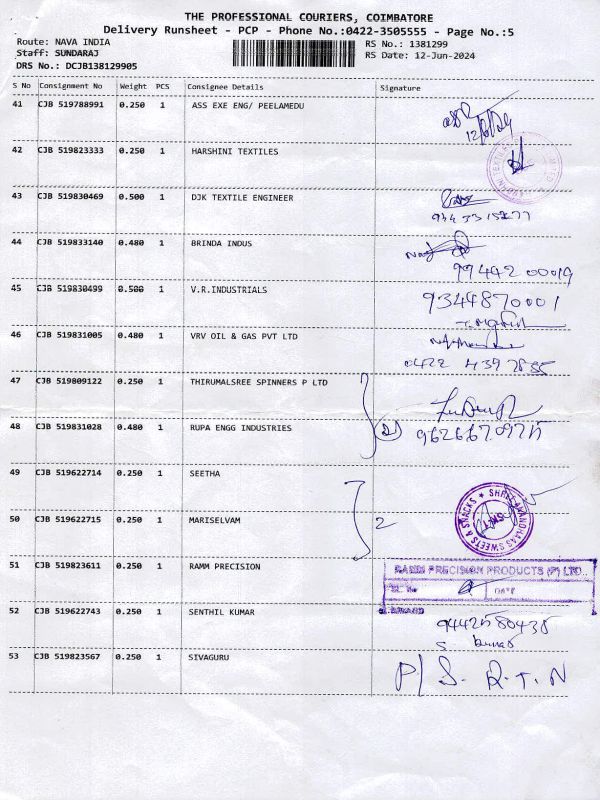 THE PROFESSIONAL COURIERS, COIMBATORE
Delivery Runsheet - PCP - Phone No.:0422-3505555 - Page No.:5
Route: NAVA INDIA RS No.: 1381299
Staff: SUNDARAJ RS Date: 12-Jun-2024
DRS No.: DCJB138129905
S No Consignment No Weight PCS Consignee Details Signature
41 CJB 519788991 0.250 1 ASS EXE ENG/ PEELAMEDU
12/6/24
42 CJB 519823333 0.250 1 HARSHINI TEXTILES
43 CJB 519830469 0.500 1 DJK TEXTILE ENGINEER
44 CJB 519833140 0.480 1 BRINDA INDUS
99442 00019
45 CJB 519830499 0.500 1 V.R.INDUSTRIALS 9344870001
46 CJB 519831005 0.480 1 VRV OIL & GAS PVT LTD
0422
47 CJB 519809122 0.250 1 THIRUMALSREE SPINNERS P LTD
48 CJB 519831028 0.480 1 RUPA ENGG INDUSTRIES 2
49 CJB 519622714 0.250 1 SEETHA
50 CJB 519622715 0.250 1 MARISELVAM 2
SWEETS & SNACKS
51 CJB 519823611 0.250 1 RAMM PRECISION RAMM PRECISION PRODUCTS (P) LTD.
DATE
52 CJB 519622743 0.250 1 SENTHIL KUMAR 9442580438
S. Kumar
53 CJB 519823567 0.250 1 SIVAGURU P/ S. R. T. N